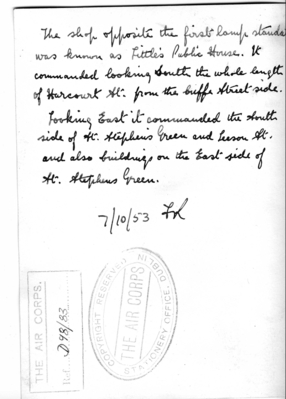 The shop opposite the first lamp standa
was known as Little's Public House. It
commanded looking South the whole length
of Harcourt St. from the Cuffe Street side.
Looking East it commanded the South
side of St. Stephens Green and Leeson St.
and also buildings on the East side of
St. Stephens Green.
7/10/53
THE AIR CORPS.
Ref. D98/83
COPYRIGHT RESERVED
THE AIR CORPS
STATIONERY OFFICE, DUBLIN